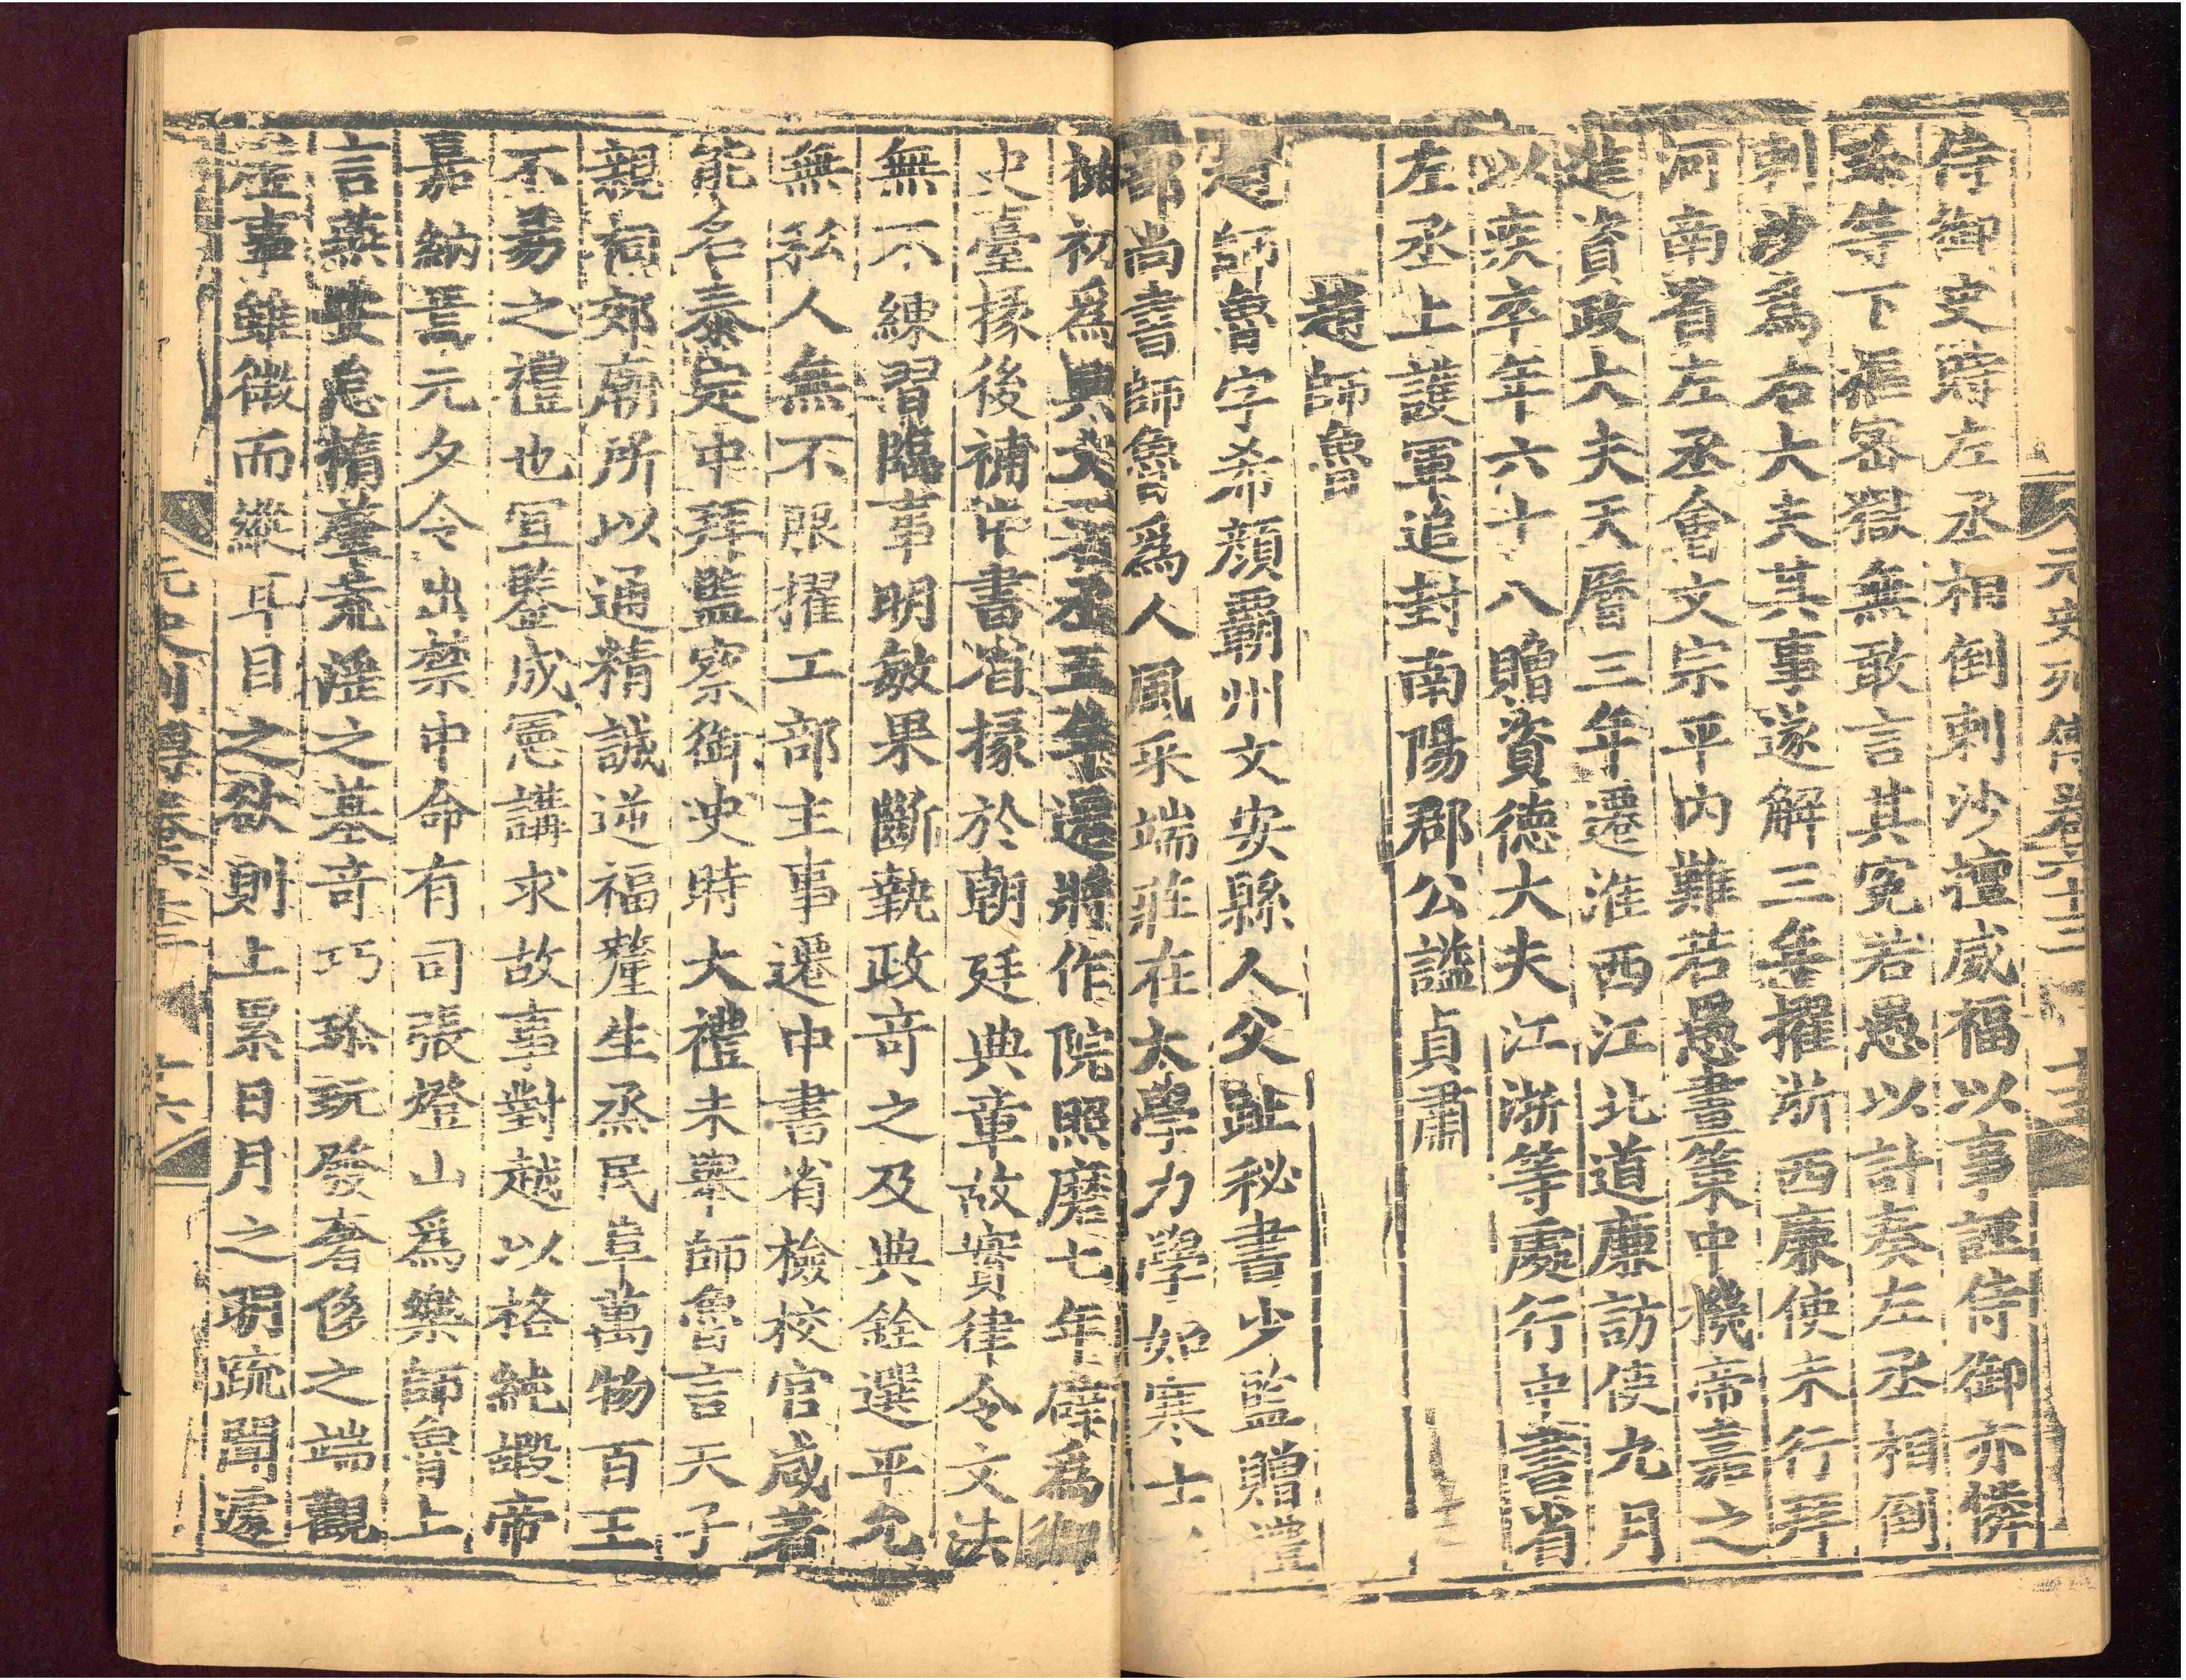 元史列傳卷六十三 十五
侍御史時左丞相倒剌沙擅威福以事誣侍御亦憐
珍等下樞密獄無敢言其寃若愚以計奏左丞相倒
剌沙爲右大夫其事遂解三年擢浙西廉使未行拜
河南省左丞會文宗平内難若愚畫策中機帝嘉之
進資政大夫天曆三年遷淮西江北道廉訪使九月
以疾卒年六十八贈資德大夫江浙等處行中書省
左丞上護軍追封南陽郡公謚貞肅
趙師魯
趙師魯字希顔霸州文安縣人父趾秘書少監贈禮
部尚書師魯爲人風采端莊在太學力學如寒士
祐初爲興文署丞五年遷將作院照磨七年辟爲御
史臺掾後補中書省掾於朝廷典章故實律令文法
無不練習臨事明敏果斷執政竒之及典銓選平允
無私人無不服擢工部主事遷中書省檢校官咸著
能名泰定中拜監察御史時大禮未舉師魯言天子
親祠郊廟所以通精誠逆福釐生烝民阜萬物百王
不易之禮也宜鑒成憲講求故事對越以格純嘏帝
嘉納焉元夕令出禁中命有司張燈山爲樂師魯上
言燕安怠惰肇荒淫之基竒巧珍玩發奢侈之端觀
燈事雖微而縱耳目之欲則上累日月之明疏聞遽
元史列傳卷六十三 十六